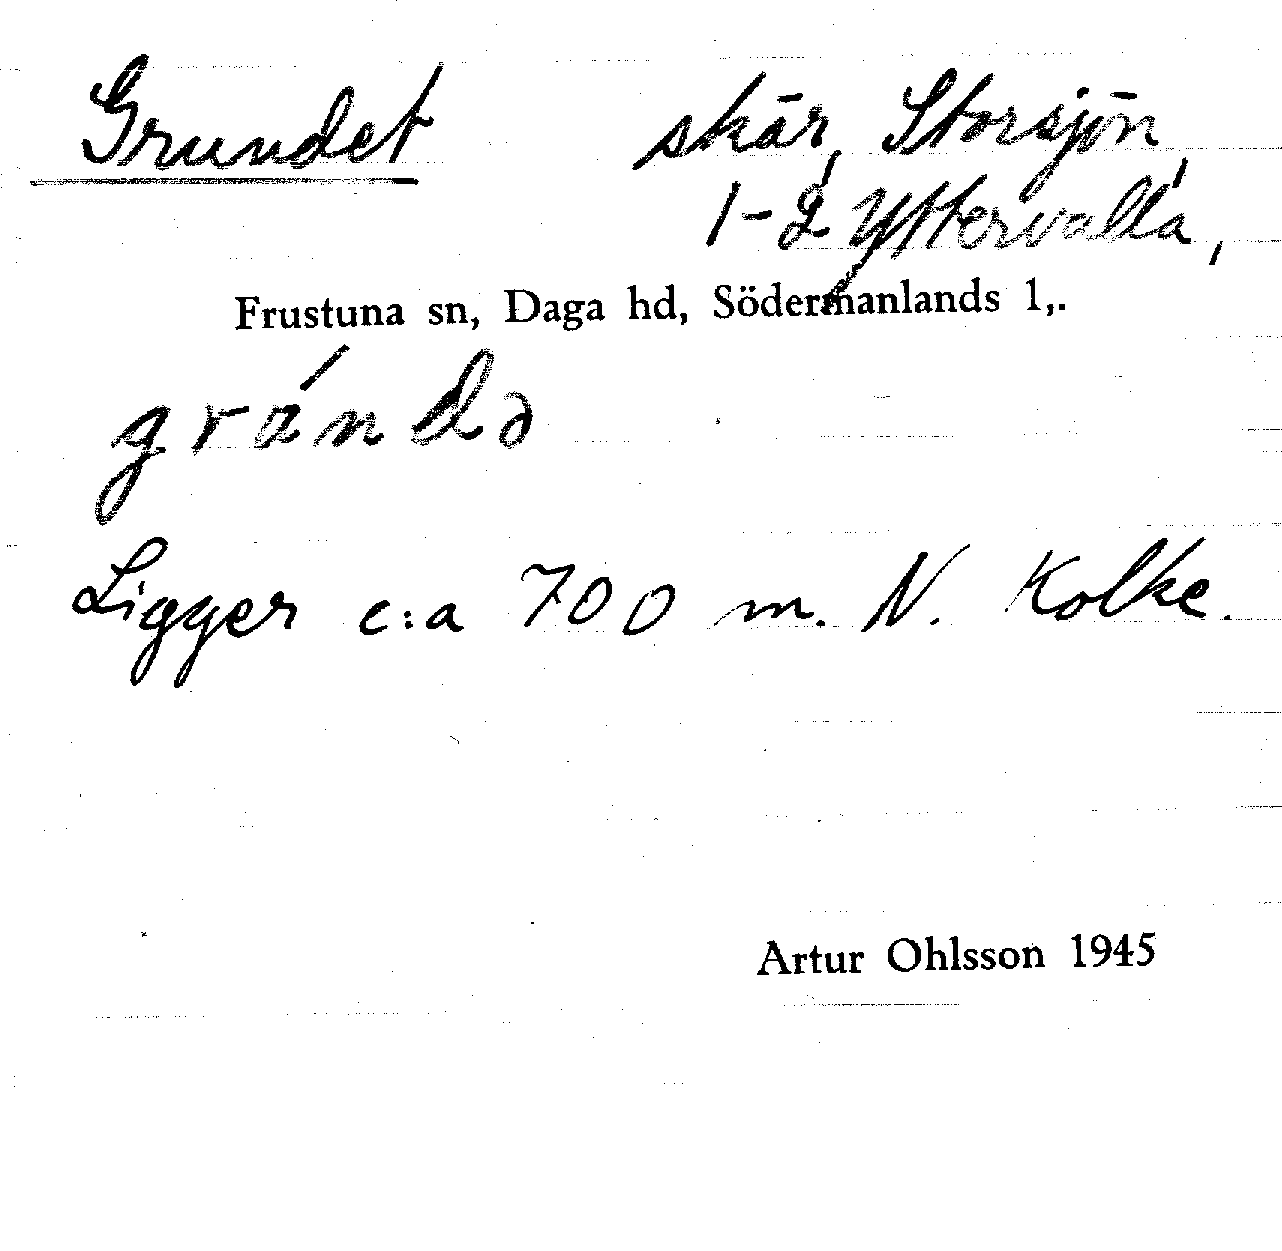 Grundet skär, Storsjön,
1-2 Yttervalla,
Frustuna sn, Daga hd, Södermanlands l,.
grándə
Ligger c:a 700 m. N. Kolke.
Artur Ohlsson 1945